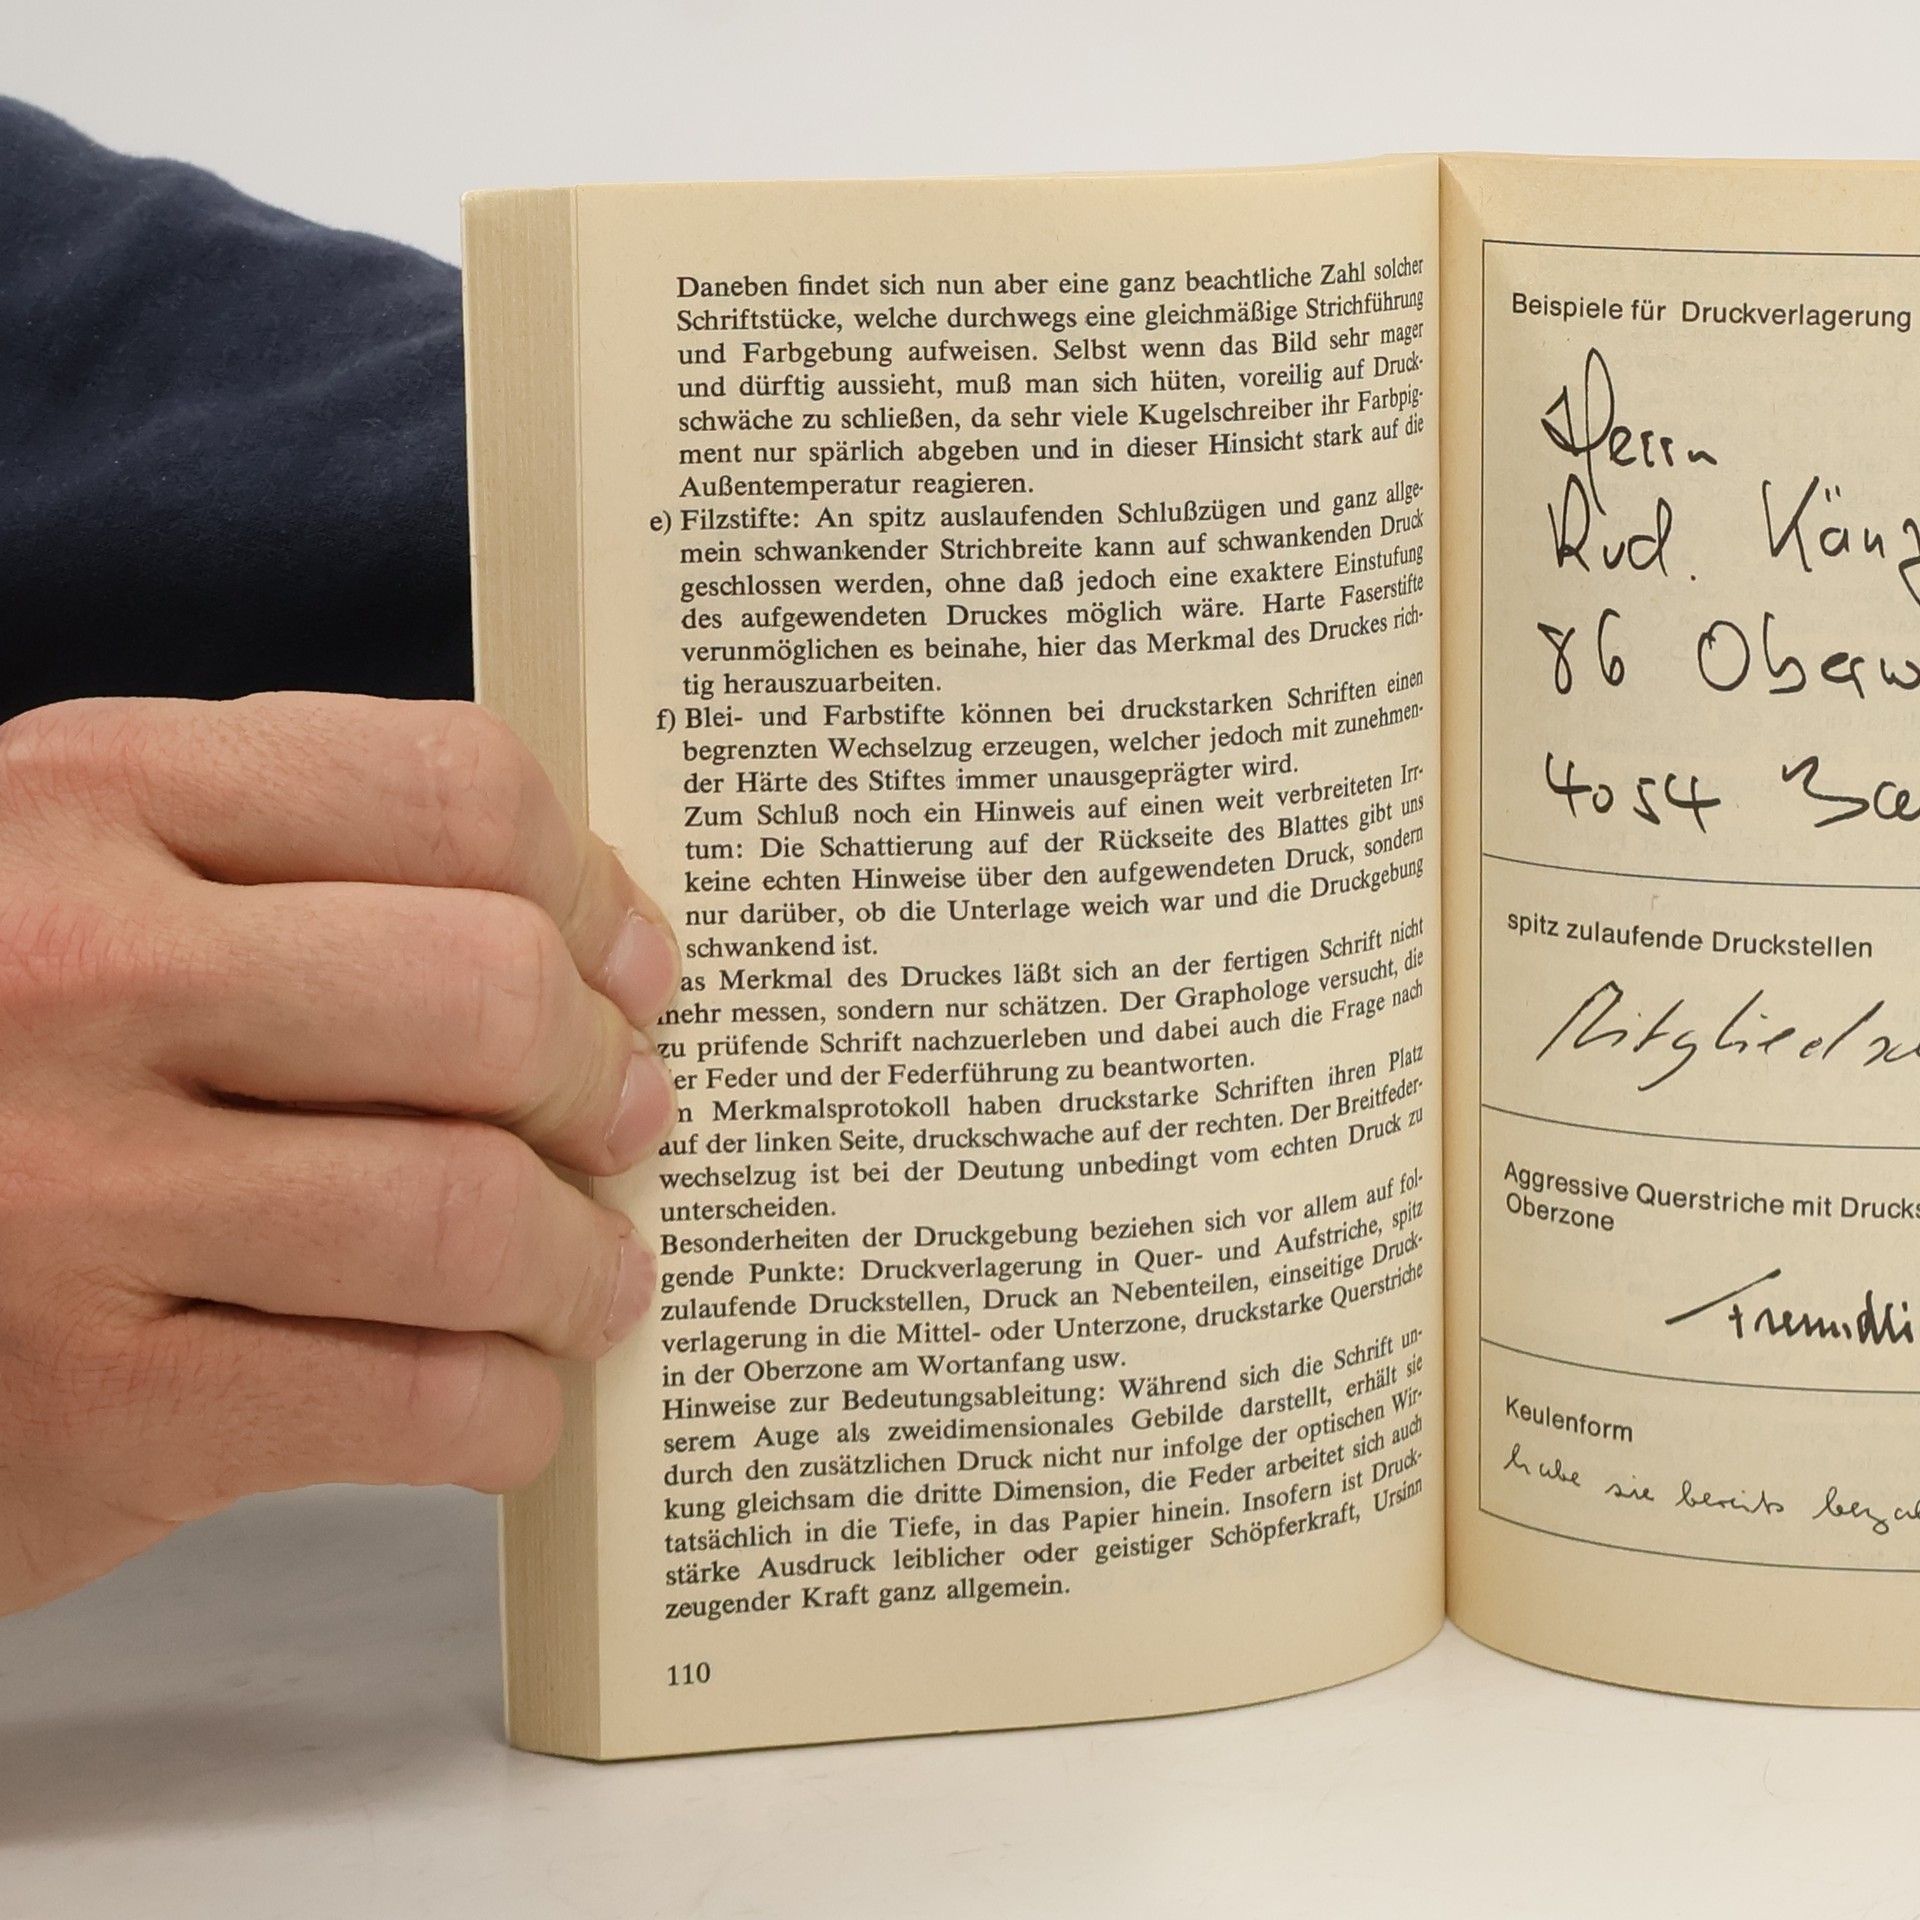 Daneben findet sich nun aber eine ganz beachtliche Zahl solcher
Schriftstücke, welche durchwegs eine gleichmäßige Strichführung
und Farbgebung aufweisen. Selbst wenn das Bild sehr mager
und dürftig aussieht, muß man sich hüten, voreilig auf Druck-
schwäche zu schließen, da sehr viele Kugelschreiber ihr Farbpig-
ment nur spärlich abgeben und in dieser Hinsicht stark auf die
Außentemperatur reagieren.
e) Filzstifte: An spitz auslaufenden Schlußzügen und ganz allge-
mein schwankender Strichbreite kann auf schwankenden Druck
geschlossen werden, ohne daß jedoch eine exaktere Einstufung
des aufgewendeten Druckes möglich wäre. Harte Faserstifte
verunmöglichen es beinahe, hier das Merkmal des Druckes rich-
tig herauszuarbeiten.
f) Blei- und Farbstifte können bei druckstarken Schriften einen
begrenzten Wechselzug erzeugen, welcher jedoch mit zunehmen-
der Härte des Stiftes immer unausgeprägter wird.
Zum Schluß noch ein Hinweis auf einen weit verbreiteten Irr-
tum: Die Schattierung auf der Rückseite des Blattes gibt uns
keine echten Hinweise über den aufgewendeten Druck, sondern
nur darüber, ob die Unterlage weich war und die Druckgebung
schwankend ist.
as Merkmal des Druckes läßt sich an der fertigen Schrift nicht
mehr messen, sondern nur schätzen. Der Graphologe versucht, die
zu prüfende Schrift nachzuerleben und dabei auch die Frage nach
er Feder und der Federführung zu beantworten.
n Merkmalsprotokoll haben druckstarke Schriften ihren Platz
auf der linken Seite, druckschwache auf der rechten. Der Breitfeder-
wechselzug ist bei der Deutung unbedingt vom echten Druck zu
unterscheiden.
Besonderheiten der Druckgebung beziehen sich vor allem auf fol-
gende Punkte: Druckverlagerung in Quer- und Aufstriche, spitz
zulaufende Druckstellen, Druck an Nebenteilen, einseitige Druck-
verlagerung in die Mittel- oder Unterzone, druckstarke Querstriche
in der Oberzone am Wortanfang usw.
Hinweise zur Bedeutungsableitung: Während sich die Schrift un-
serem Auge als zweidimensionales Gebilde darstellt, erhält sie
durch den zusätzlichen Druck nicht nur infolge der optischen Wir-
kung gleichsam die dritte Dimension, die Feder arbeitet sich auch
tatsächlich in die Tiefe, in das Papier hinein. Insofern ist Druck-
stärke Ausdruck leiblicher oder geistiger Schöpferkraft, Ursinn
zeugender Kraft ganz allgemein.
110
Beispiele für Druckverlagerung
Herrn
Rud. Känz
86 Oberw
4054 Ba
spitz zulaufende Druckstellen
Mitglieds
Aggressive Querstriche mit Drucks
Oberzone
Fremdli
Keulenform
habe sie bereits beza